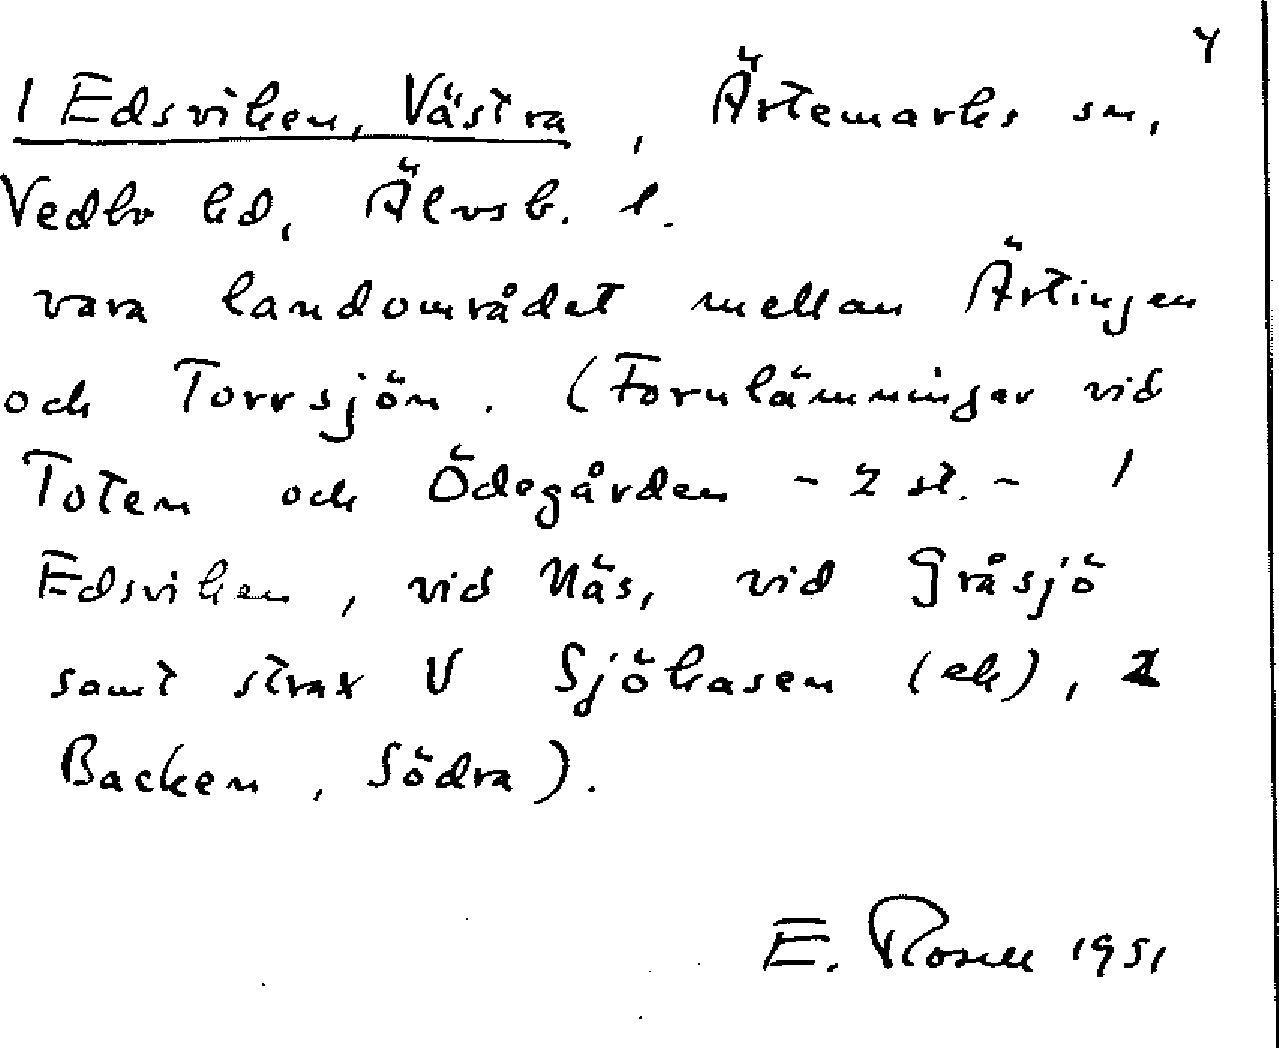 4
1 Edsviken, Västra, Ärtemarks sn,
Vedbo hd, Älvsb. l.
vara landområdet mellan Ärtingen
och Torrsjön. (Fornlämningar vid
Toten och Ödegården - 2 st. - 1
Edsviken, vid Näs, vid Gråsjö
samt strax V Sjöhasen (ek), 2
Backen, Södra).
E. Rosell 1951